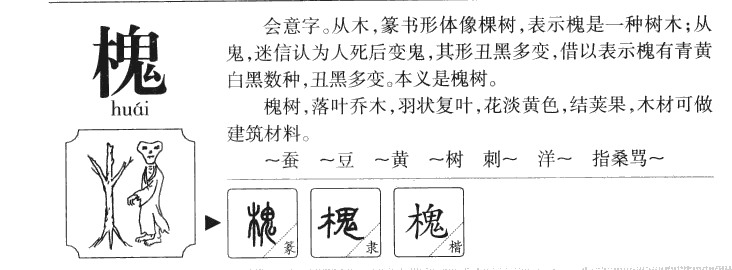 槐
huái
会意字。从木，篆书形体像棵树，表示槐是一种树木；从
鬼，迷信认为人死后变鬼，其形丑黑多变，借以表示槐有青黄
白黑数种，丑黑多变。本义是槐树。
槐树，落叶乔木，羽状复叶，花淡黄色，结荚果，木材可做
建筑材料。
～蚕 ～豆 ～黄 ～树 刺～ 洋～ 指桑骂～
槐 篆
槐 隶
槐 楷